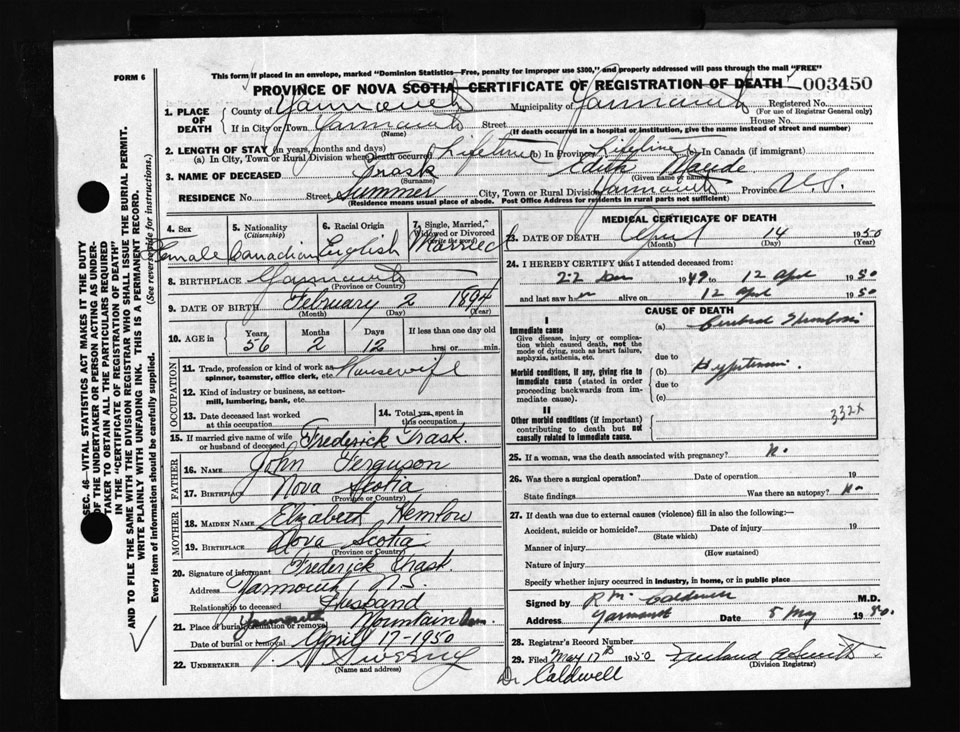 FORM 6
This form if placed in an envelope, marked "Dominion Statistics—Free, penalty for improper use $300," and properly addressed will pass through the mail "FREE"
PROVINCE OF NOVA SCOTIA—CERTIFICATE OF REGISTRATION OF DEATH 003450
1. PLACE OF DEATH
County of Yarmouth Municipality of Yarmouth Registered No.
(For use of Registrar General only)
If in City or Town Yarmouth Street House No.
(Name) (If death occurred in a hospital or institution, give the name instead of street and number)
2. LENGTH OF STAY (in years, months and days)
(a) In City, Town or Rural Division where death occurred Lifetime (b) In Province Lifetime (c) In Canada (if immigrant)
3. NAME OF DECEASED Trask Edith Maude
(Surname) (Given name or names)
RESIDENCE No. Street Summer City, Town or Rural Division Yarmouth Province N.S.
(Residence means usual place of abode. Post Office Address for residents in rural parts not sufficient)
4. Sex Female
5. Nationality (Citizenship) Canadian
6. Racial Origin English
7. Single, Married, Widowed or Divorced (write the word) Married
8. BIRTHPLACE Yarmouth
(Province or Country)
9. DATE OF BIRTH February 2 1894
(Month) (Day) (Year)
10. AGE in Years 56 Months 2 Days 12 If less than one day old hrs. or min.
OCCUPATION
11. Trade, profession or kind of work as spinner, teamster, office clerk, etc. Housewife
12. Kind of industry or business, as cotton-mill, lumbering, bank, etc.
13. Date deceased last worked at this occupation
14. Total yrs. spent in this occupation
15. If married give name of wife or husband of deceased Frederick Trask.
FATHER
16. NAME John Ferguson
17. BIRTHPLACE Nova Scotia
(Province or Country)
MOTHER
18. MAIDEN NAME Elizabeth Hemlow
19. BIRTHPLACE Nova Scotia
(Province or Country)
20. Signature of informant Frederick Trask.
Address Yarmouth N.S.
Relationship to deceased Husband
21. Place of burial, cremation or removal Yarmouth Mountain Cem.
Date of burial or removal April 17-1950
22. UNDERTAKER Sweeny
(Name and address)
MEDICAL CERTIFICATE OF DEATH
23. DATE OF DEATH April 14 1950
(Month) (Day) (Year)
24. I HEREBY CERTIFY that I attended deceased from:
22 Dec 1949 to 12 Apl 1950
and last saw her alive on 12 Apl 1950
CAUSE OF DEATH
I
Immediate cause
Give disease, injury or complication which caused death, not the mode of dying, such as heart failure, asphyxia, asthenia, etc.
(a) Cerebral Thrombosis
due to
Morbid conditions, if any, giving rise to immediate cause (stated in order proceeding backwards from immediate cause).
(b) Hypertension.
due to
(c)
II
Other morbid conditions (if important) contributing to death but not causally related to immediate cause.
332X
25. If a woman, was the death associated with pregnancy? No
26. Was there a surgical operation? Date of operation 19
State findings Was there an autopsy? No
27. If death was due to external causes (violence) fill in also the following:—
Accident, suicide or homicide? Date of injury 19
(State which)
Manner of injury
(How sustained)
Nature of injury
Specify whether injury occurred in industry, in home, or in public place
Signed by R.M. Caldwell M.D.
Address Yarmouth Date 5 May 1950.
28. Registrar's Record Number
29. Filed May 17th 1950 Smith
(Division Registrar)
Dr Caldwell
SEC. 46—VITAL STATISTICS ACT MAKES IT THE DUTY OF THE UNDERTAKER OR PERSON ACTING AS UNDERTAKER TO OBTAIN ALL THE PARTICULARS REQUIRED IN THE "CERTIFICATE OF REGISTRATION OF DEATH"
AND TO FILE THE SAME WITH THE DIVISION REGISTRAR WHO SHALL ISSUE THE BURIAL PERMIT.
WRITE PLAINLY WITH UNFADING INK. THIS IS A PERMANENT RECORD.
Every item of information should be carefully supplied. (See reverse side for instructions.)